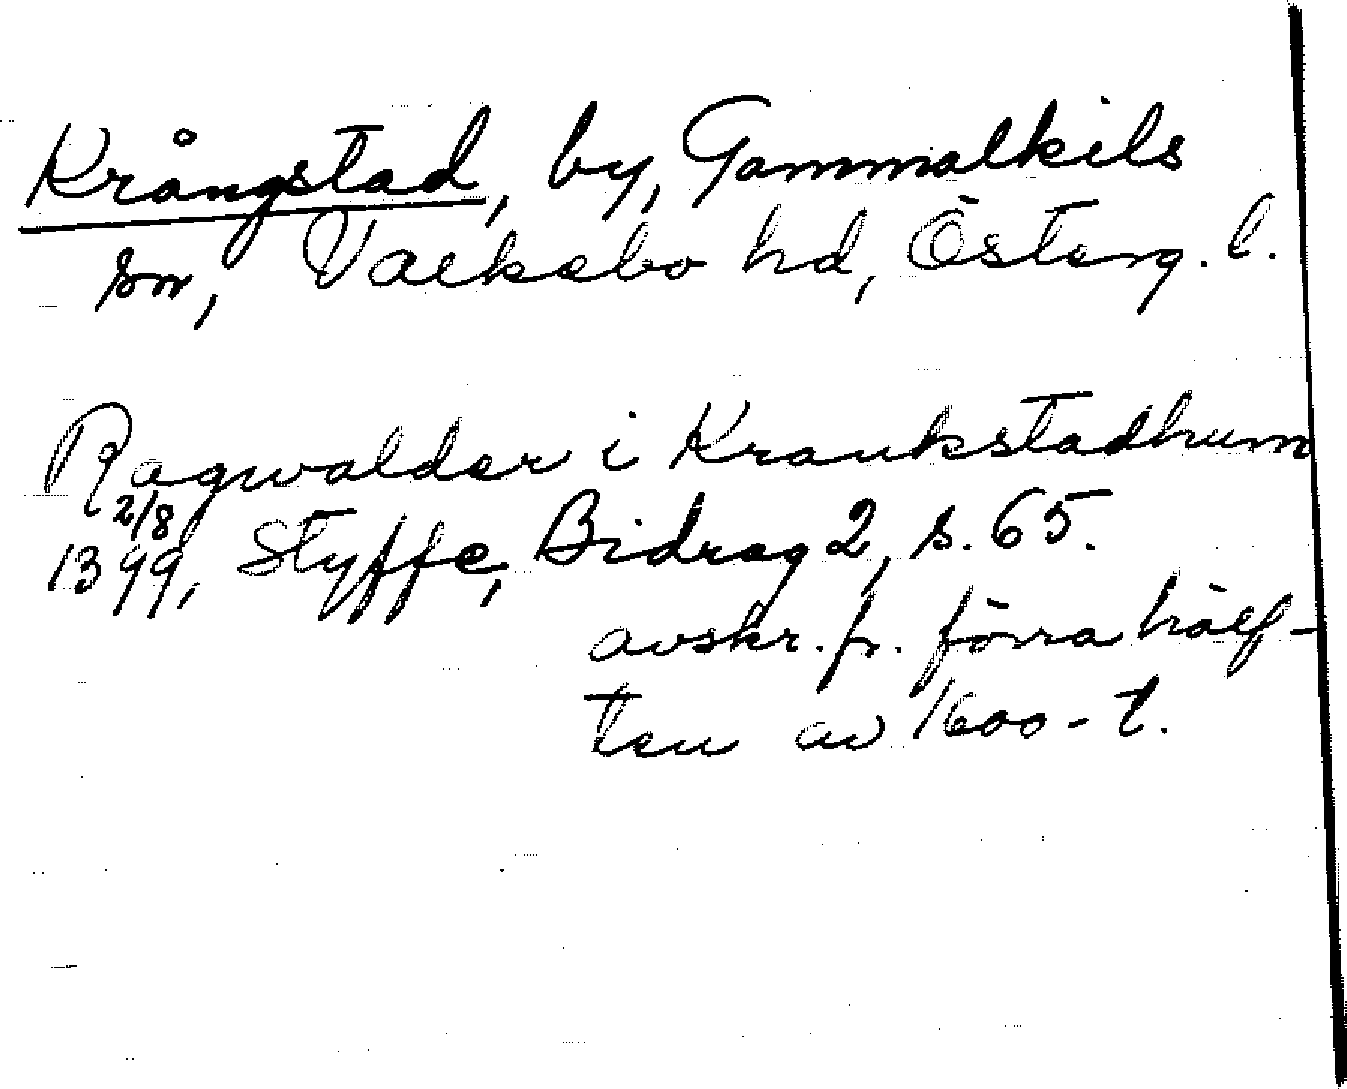 Krångstad, by, Gammalkils
sn, Valkebo hd, Österg. l.
Ragwalder i Krankstadhum
2/8
1399, Styffe, Bidrag 2, s. 65.
avskr. fr. förra hälf-
ten av 1600-t.